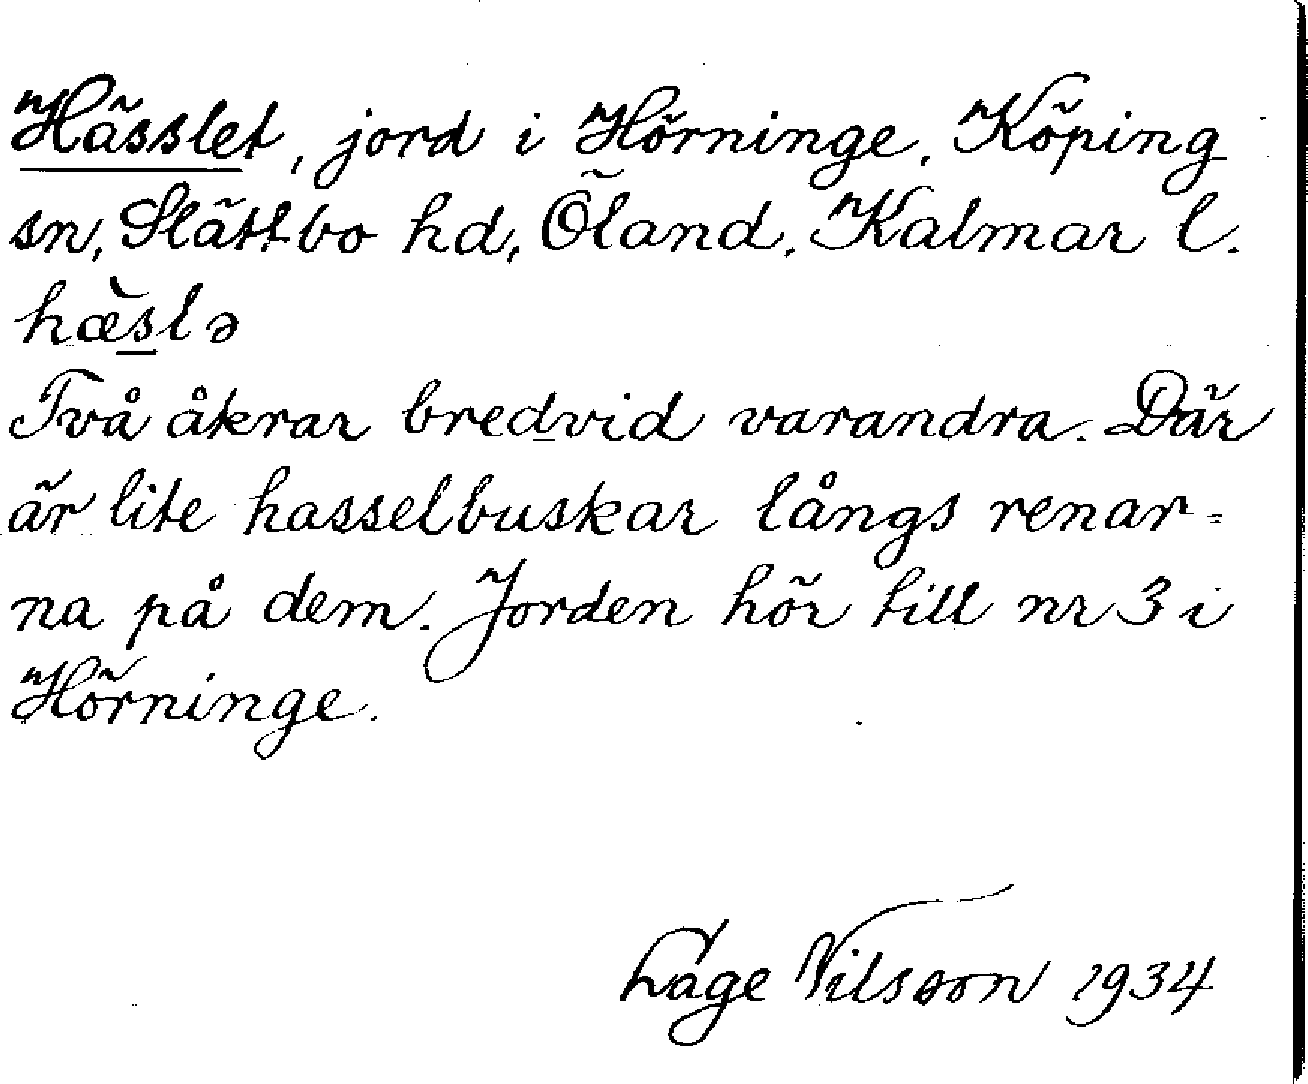 Hässlet, jord i Hörninge, Köping
sn, Slättbo hd, Öland, Kalmar l.
hæ̀slə
Två åkrar bredvid varandra. Där
är lite hasselbuskar långs renar=
na på dem. Jorden hör till nr 3 i
Hörninge.
Låge Nilsson 1934